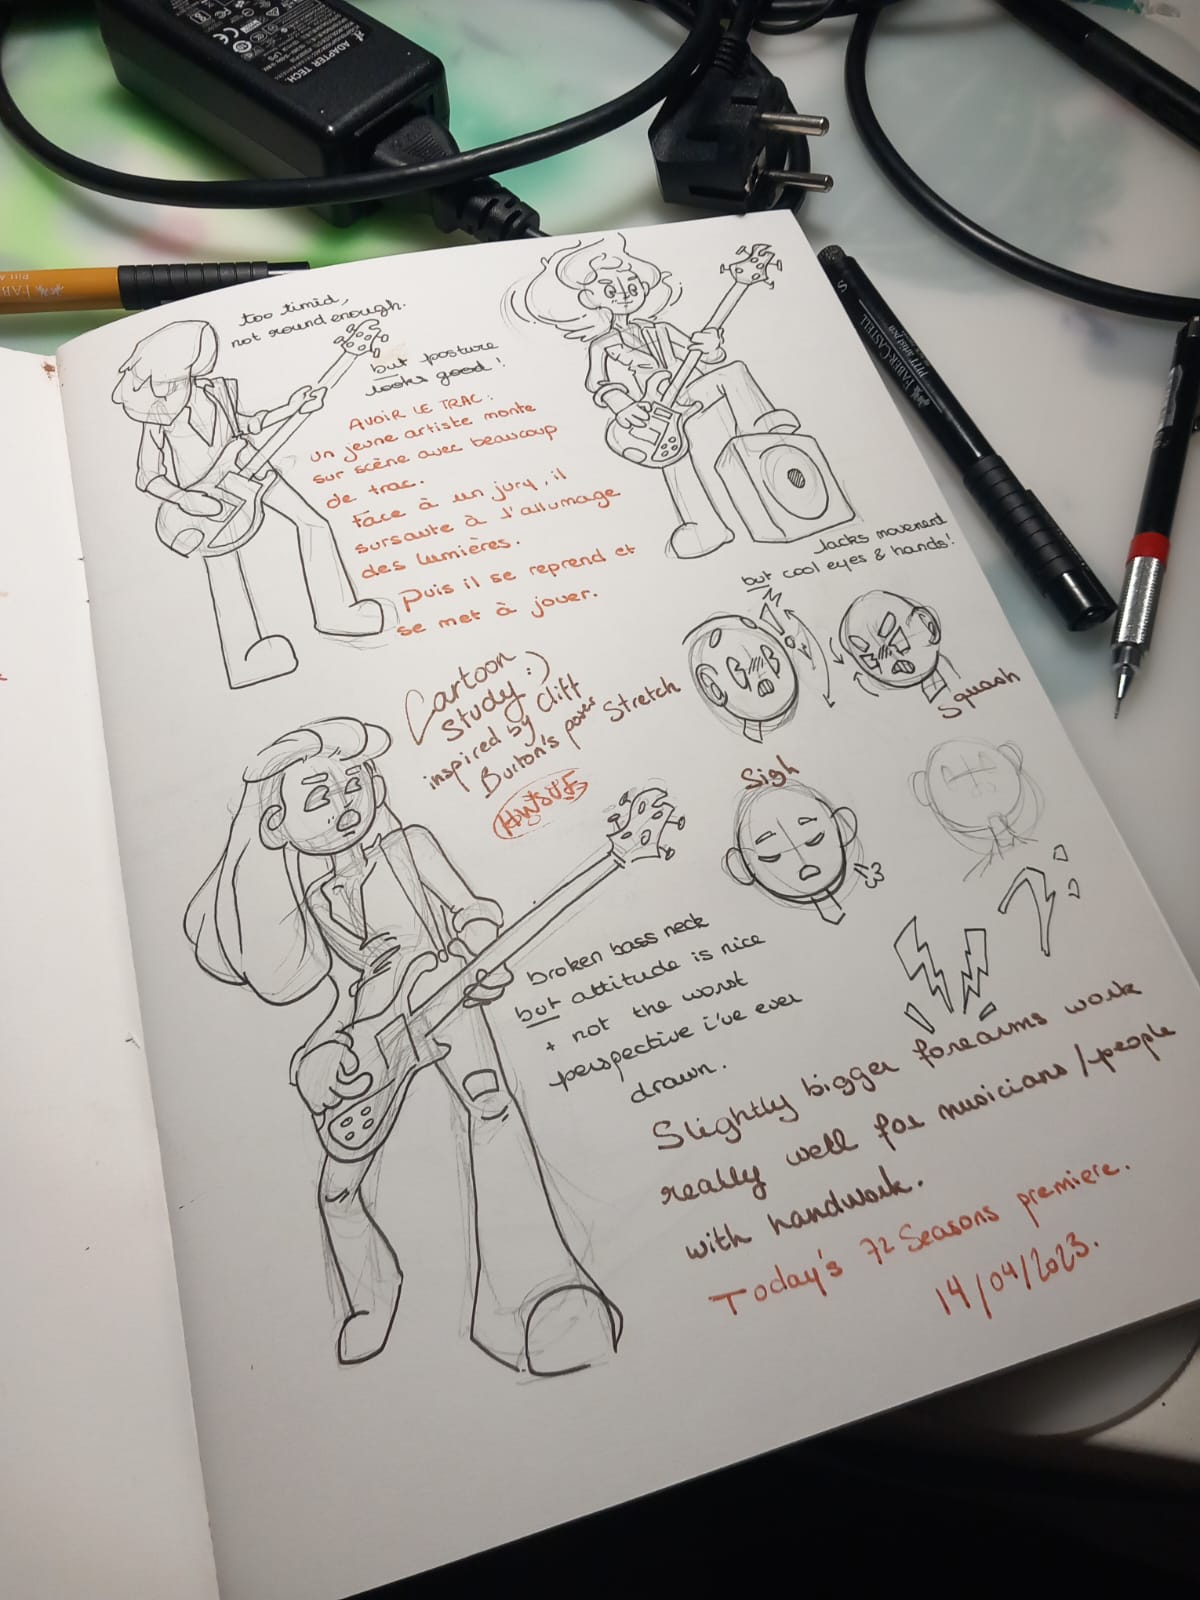 ADAPTER TECH.
LPS
too timid,
not round enough.
but posture
looks good !
AVOIR LE TRAC :
un jeune artiste monte
sur scène avec beaucoup
de trac.
Face à un jury, il
sursaute à l'allumage
des lumières.
Puis il se reprend et
se met à jouer.
lacks movement
but cool eyes & hands!
FABER-CASTELL
PITT artist pen
S
Cartoon
study :)
inspired by Cliff
Burton's poses
Stretch
Squash
Sigh
broken bass neck
but attitude is nice
+ not the worst
perspective i've ever
drawn.
Slightly bigger forearms work
really well for musicians/people
with handwork.
Today's 72 Seasons premiere.
14/04/2023.